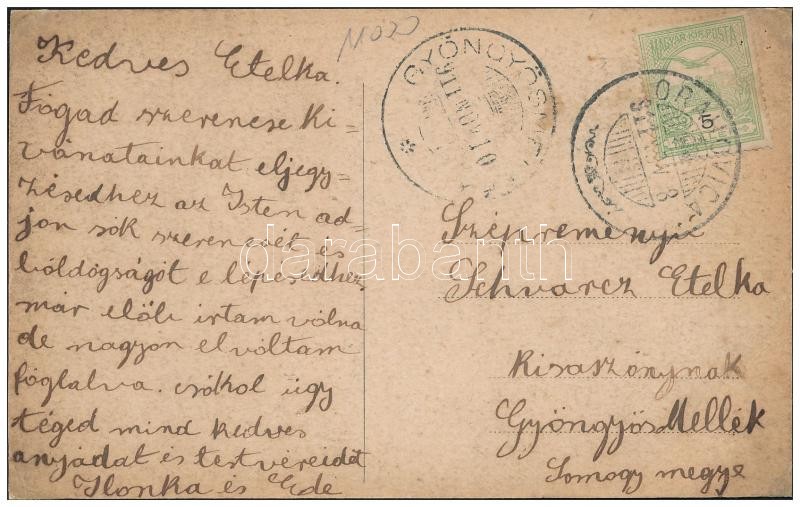 Kedves Etelka.
Fógad szerencse Ki-
vánatainkat eljegy-
zésedhez az Isten ad-
jon sók szerencsét és
bóldógságót e lepésedhez,
már elöb irtam vólna
de nagyon el vóltam
fóglalva. csókol ugy
téged mind kedves
anyádat és testvéreidet
Ilonka és Ede
11020
GYÖNGYÖSMELLÉK
MAGYAR KIR. POSTA
5
ORAHOVICA
911
8
Szépreményü
Schvarcz Etelka
Kisaszónynak
GyöngyösMellék
Somogy megye
darabanth